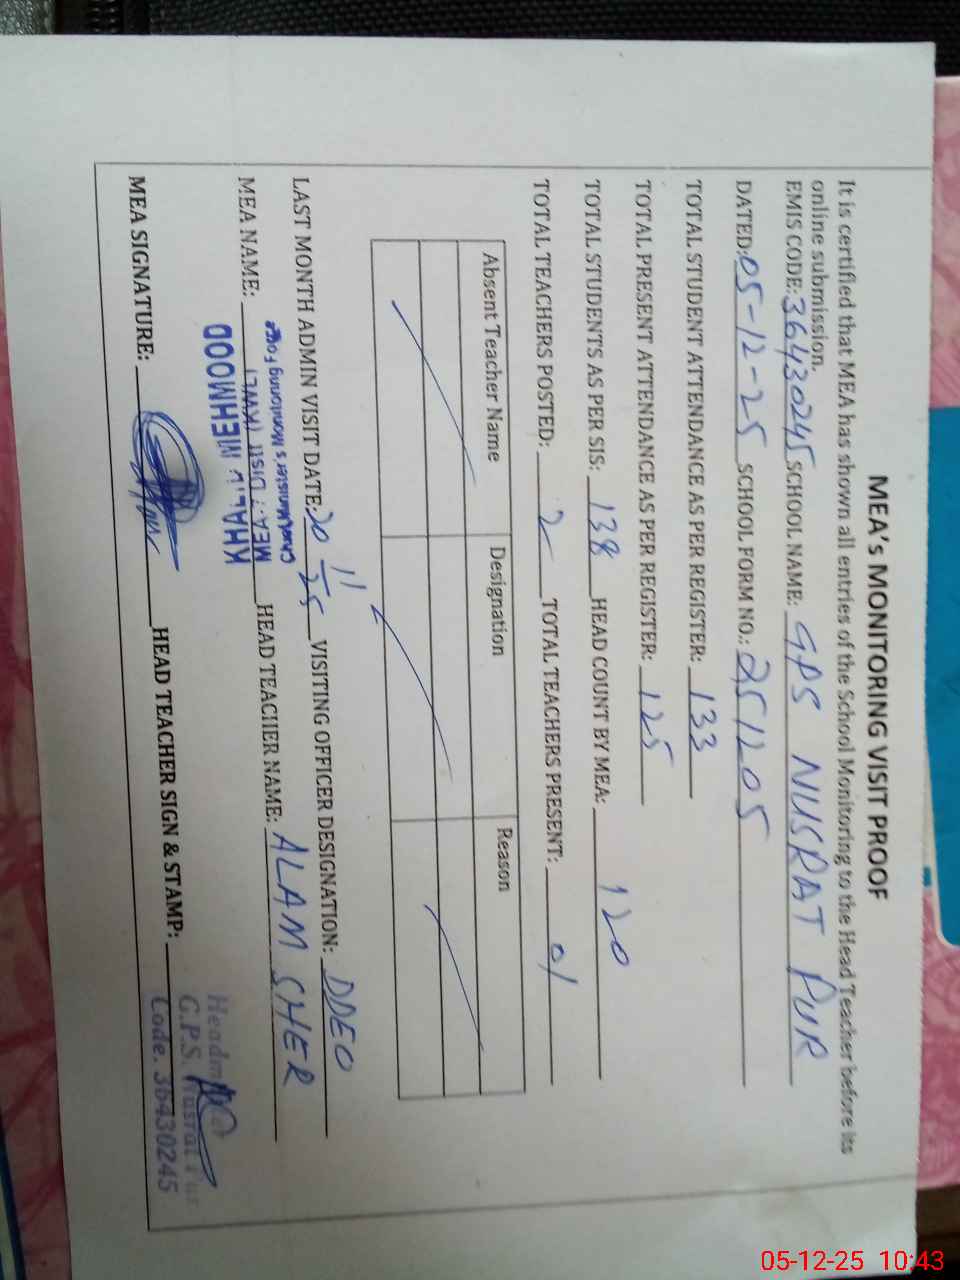 MEA's MONITORING VISIT PROOF
It is certified that MEA has shown all entries of the School Monitoring to the Head Teacher before its
online submission.
EMIS CODE: 36430245 SCHOOL NAME: GPS NUSRAT PUR
DATED: 05-12-25 SCHOOL FORM NO.: 251205
TOTAL STUDENT ATTENDANCE AS PER REGISTER: 133
TOTAL PRESENT ATTENDANCE AS PER REGISTER: 125
TOTAL STUDENTS AS PER SIS: 138 HEAD COUNT BY MEA: 120
TOTAL TEACHERS POSTED: 2 TOTAL TEACHERS PRESENT: 01
Absent Teacher Name Designation Reason
LAST MONTH ADMIN VISIT DATE: 20 11 25 VISITING OFFICER DESIGNATION: DDEO
MEA NAME: HEAD TEACHER NAME: ALAM SHER
Chief Minister's Monitoring Force
MEA-7 Distt (KWL)
KHALID MEHMOOD
MEA SIGNATURE: HEAD TEACHER SIGN & STAMP:
G.P.S. Nusrat Pur
Code. 36430245
05-12-25 10:43